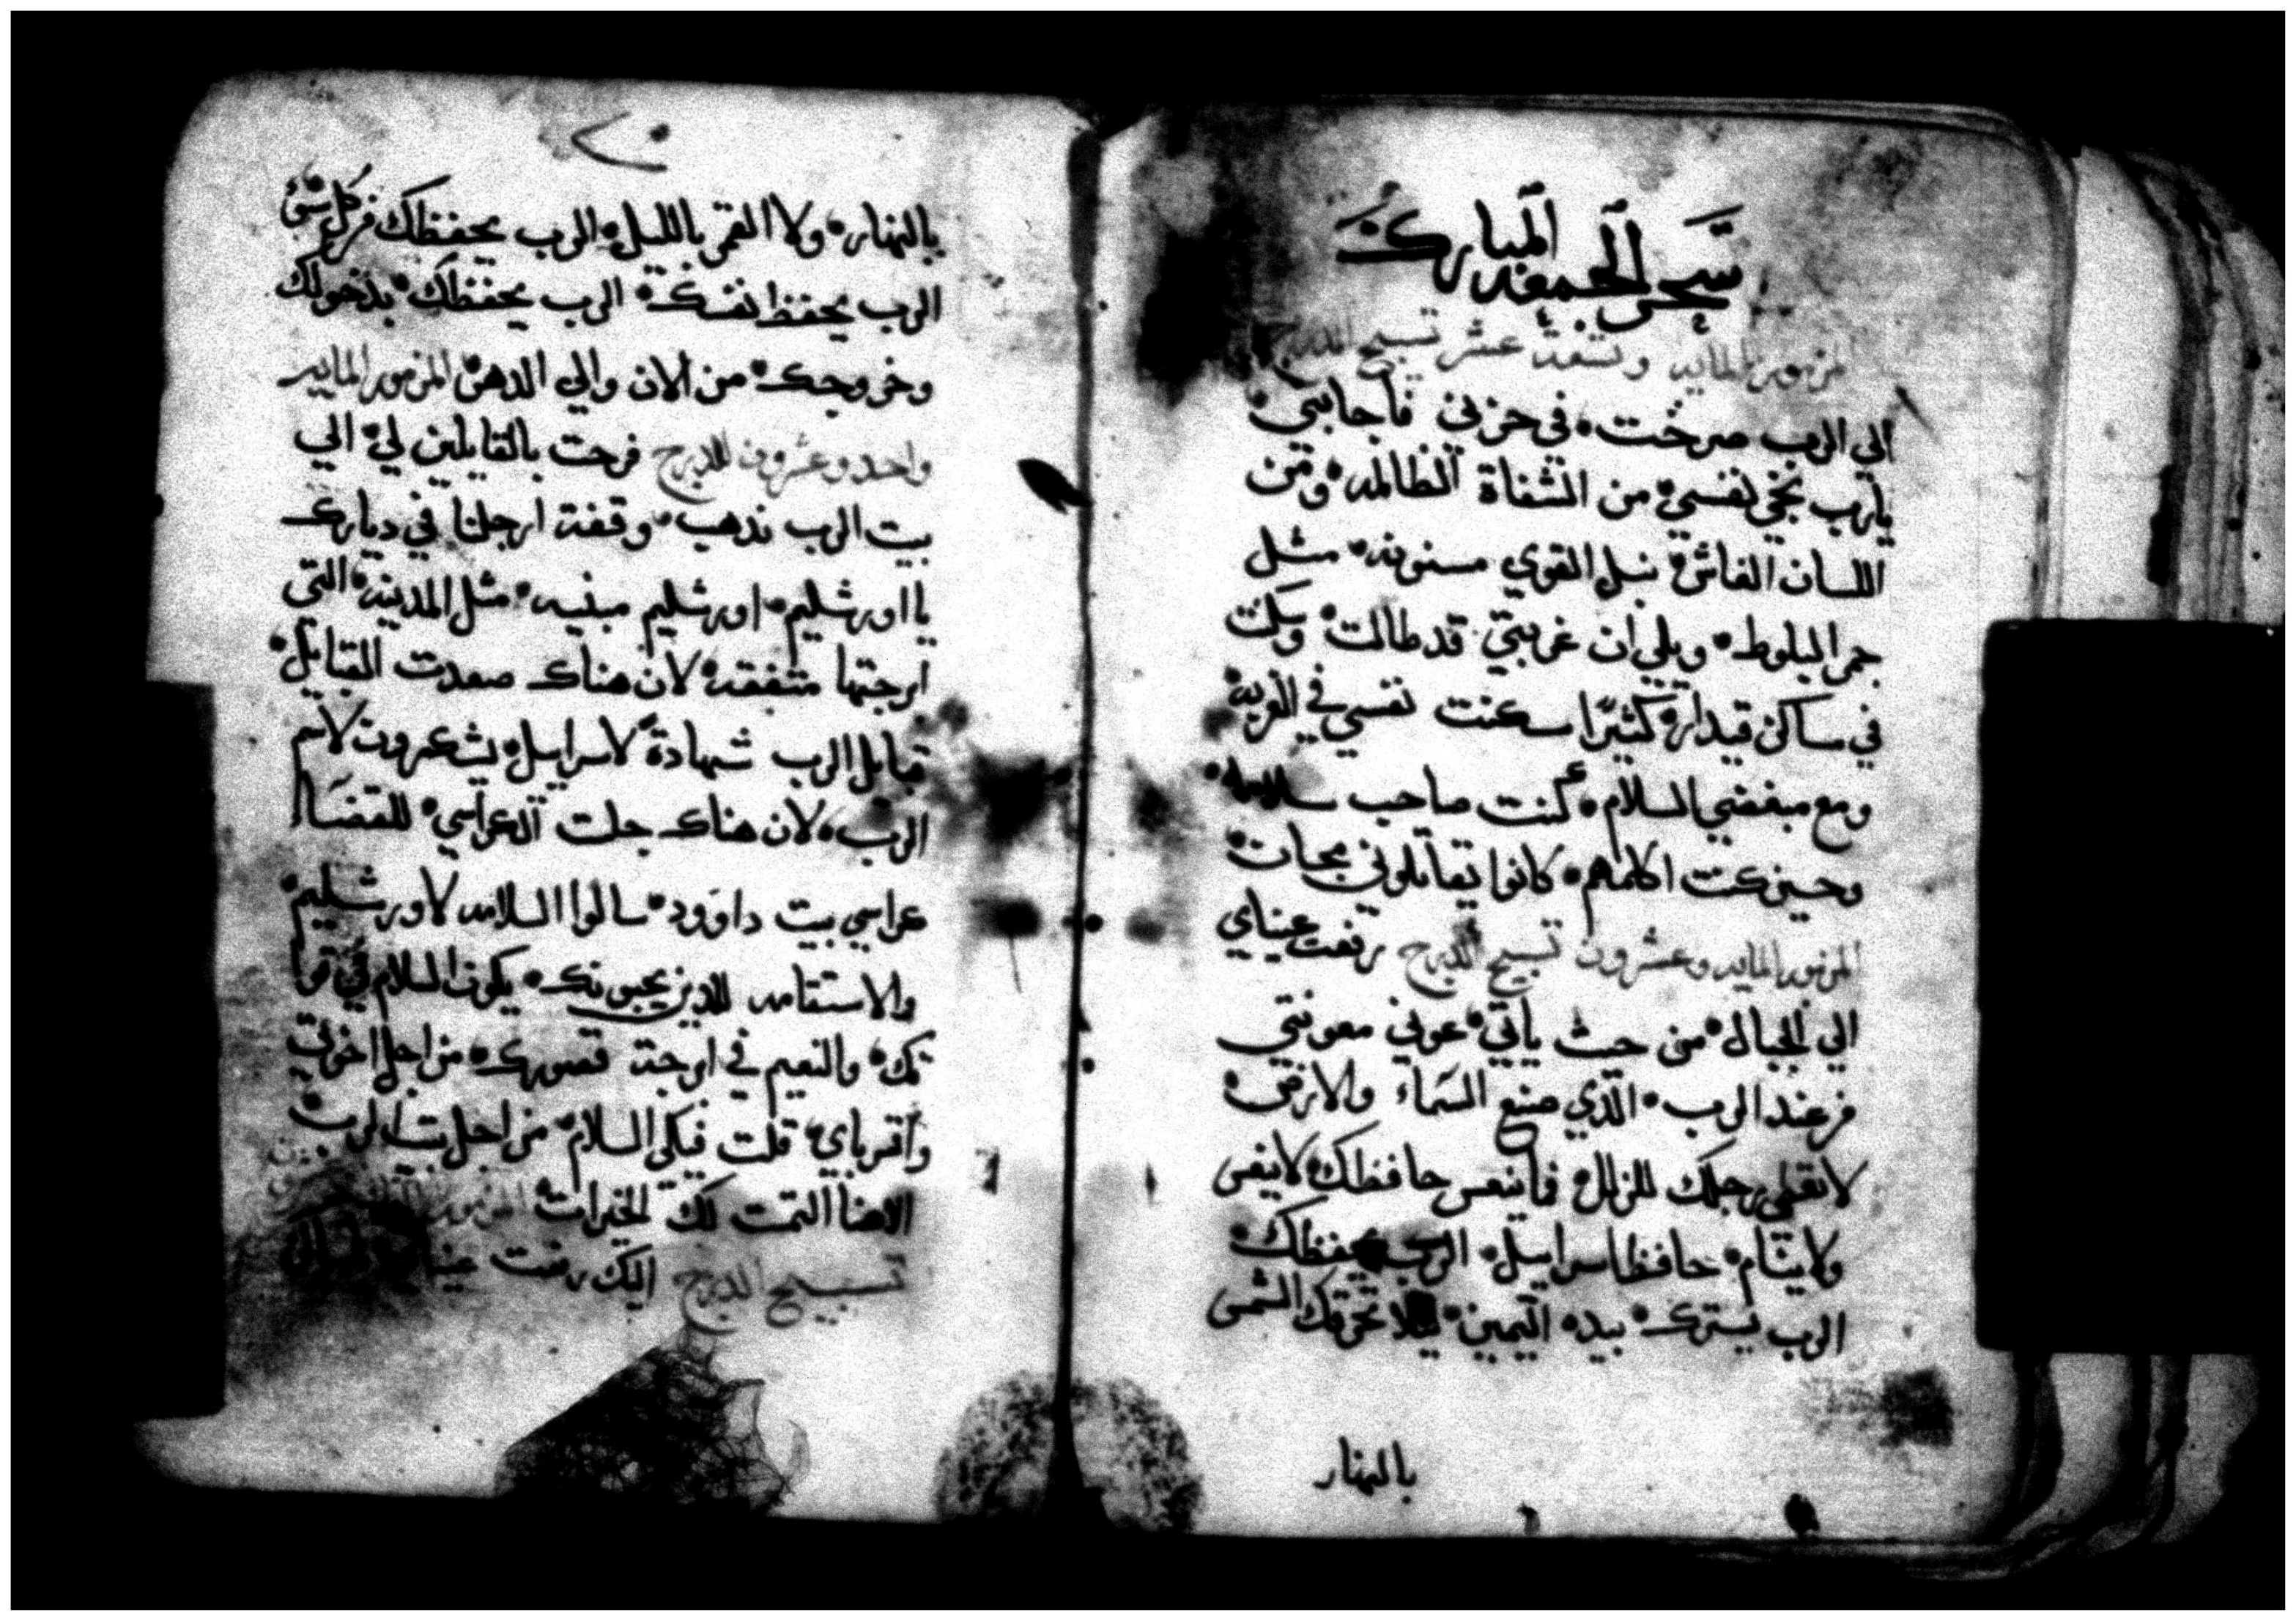 سحر الجمعه المباركه
المزمور المايه وتسعة عشر تسبيح الدرج
الي الرب صرخت في حزني فأجابني
يارب نجّي نفسي من الشفاة الظالمه ومن
اللسان الغاش نبل القوي مسنونه مثل
جمر البلوط ويلي ان غربتي قد طالت وسكنت
في ساكن قيدار كثيرًا سكنت نفسي في الغربه
ومع مبغضي السلام كنت صاحب سلامه
وحين كنت اكلمهم كانوا يقاتلوني مجانا
المزمور المايه وعشرون تسبيح الدرج رفعت عيناي
الي الجبال من حيث يأتي عوني معونتي
من عند الرب الذي صنع السماء والارض
لا تعطي رجلك للزلل فما ينعس حافظك لا ينعس
ولا ينام حافظ اسراييل الرب يحفظك
الرب يسترك بيده اليمين ليلا تحرقك الشمس
بالنهار
بالنهار ولا القمر بالليل الرب يحفظك من كل شيء
الرب يحفظ نفسك الرب يحفظك بدخولك
وخروجك من الان والي الدهر المزمور المايه
واحد وعشرون للدرج فرحت بالقايلين لي الي
بيت الرب نذهب وقفت ارجلنا في ديارك
يا اورشليم اورشليم مبنيه مثل المدينه التي
ارجتها متفقه لان هناك صعدت القبايل
قبايل الرب شهادة لاسراييل يشكرون لاسم
الرب لان هناك جلت الكراسي للقضاا
كراسي بيت داوود سالوا السلامه لاورشليم
والاستقامه للذين يحبونك يكون السلام في قوا
تك والنعيم في ارجة قصورك من اجل اخوتي
واقرباي قلت فيكي السلام من اجل بيت الرب
الاهنا التمت لك الخيرات المزمور المايه
تسبيح الدرج اليك رفعت